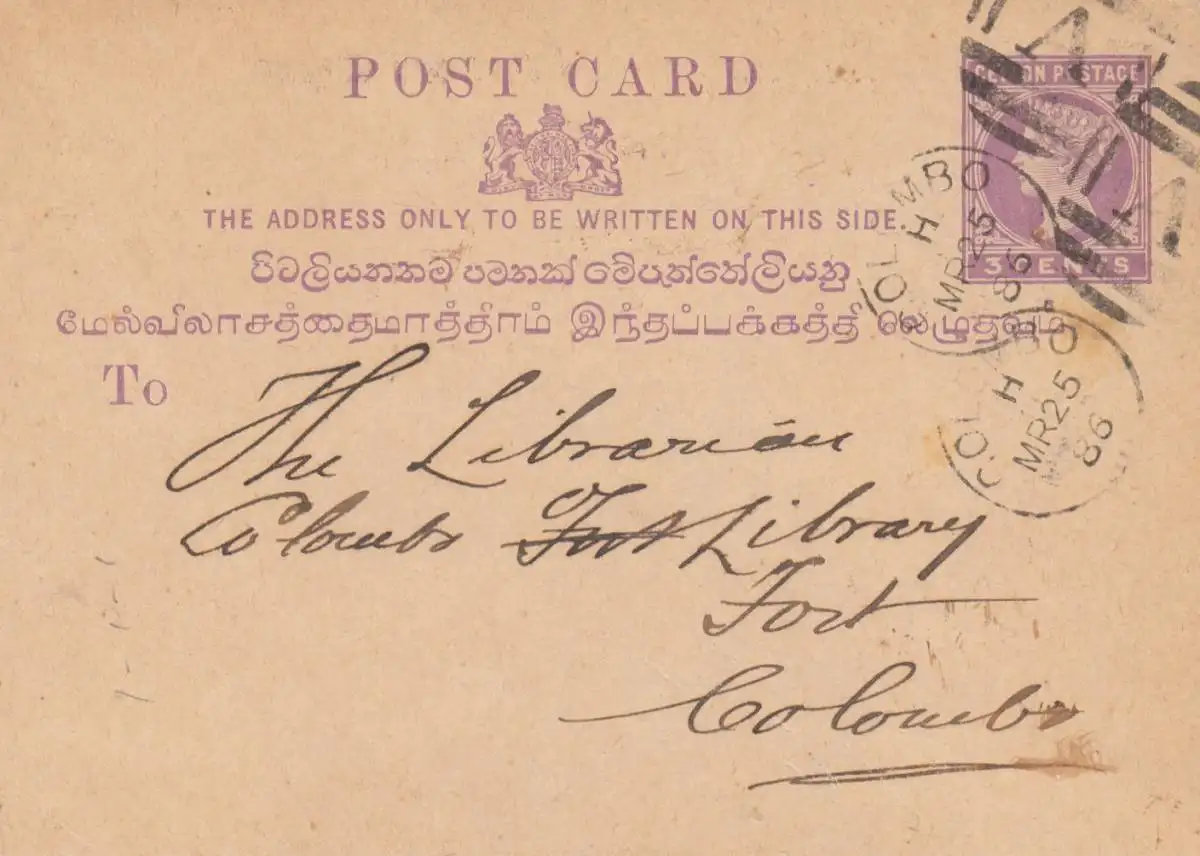 POST CARD
CEYLON POSTAGE
THE ADDRESS ONLY TO BE WRITTEN ON THIS SIDE.
පිටලියනතම පමනක් මේපුත්තේලියනු
மேல்விலாசத்தைமாத்திரம் இந்தப்பக்கத்தி லெழுதவும்
3 CENTS
COLOMBO
H
MR25
86
COLOMBO
H
MR25
86
To
The Librarian
Colombo Fort Library
Fort
Colombo